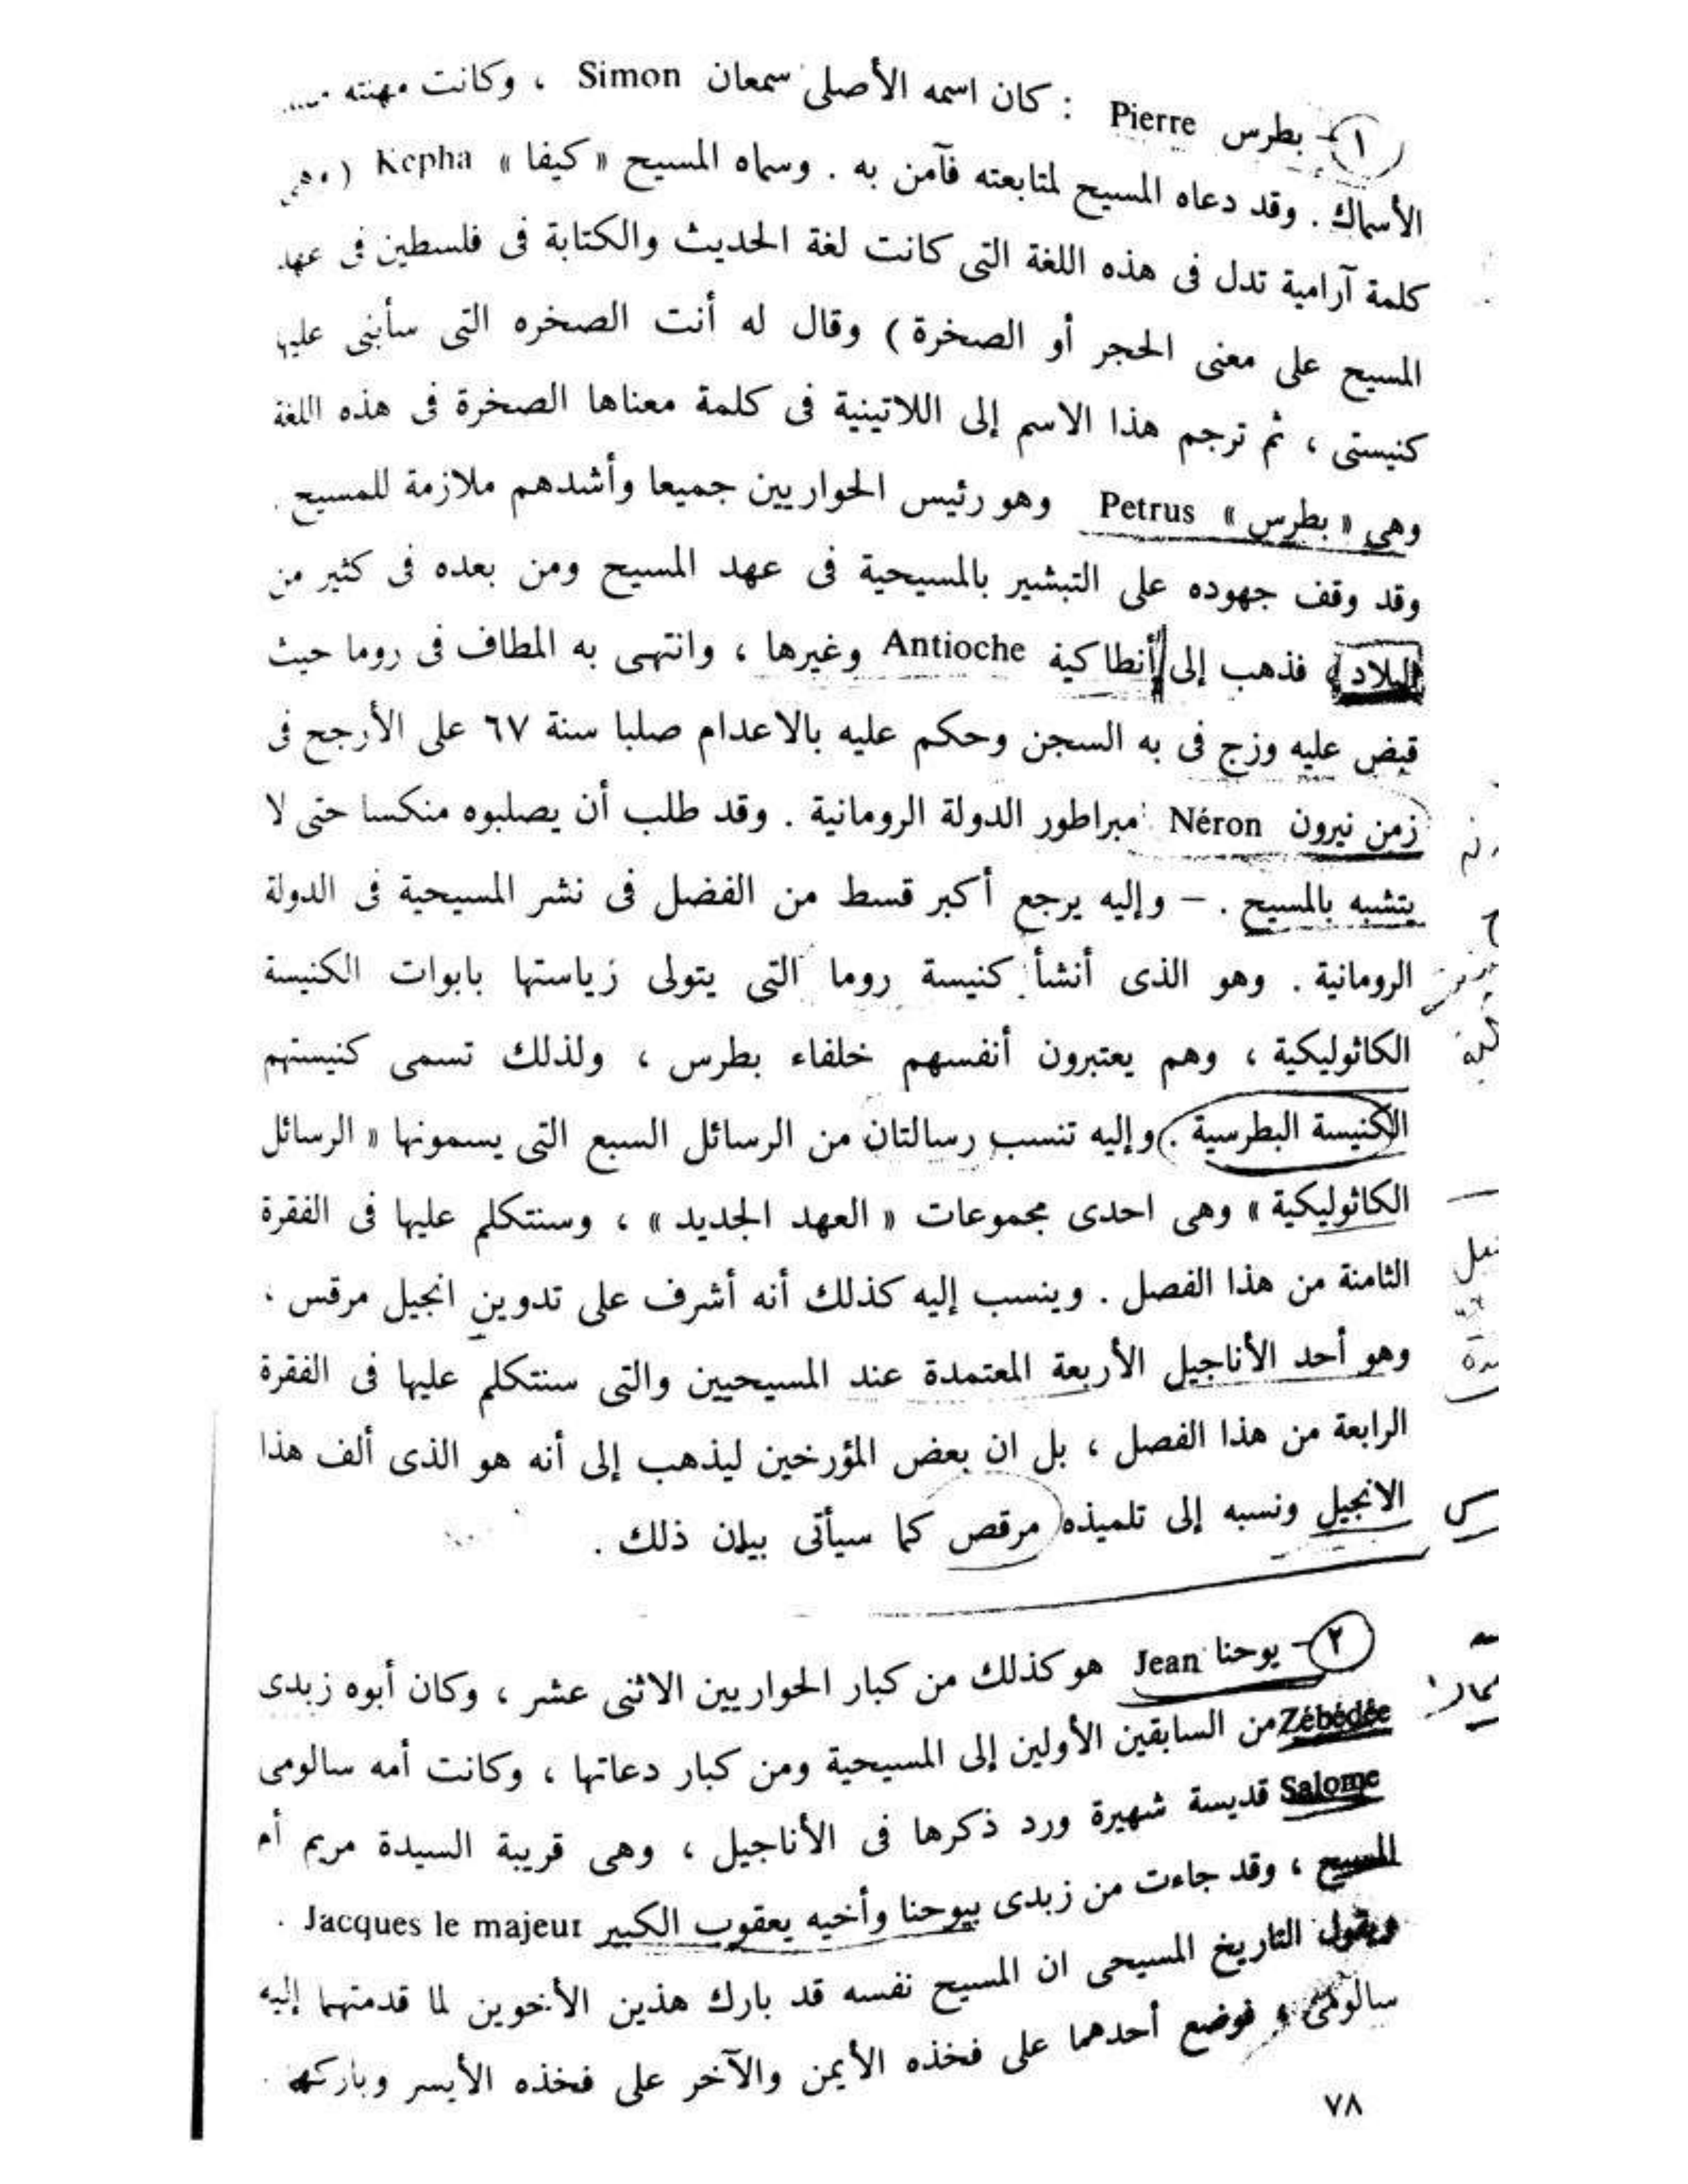 ١ - بطرس Pierre : كان اسمه الأصلى سمعان Simon ، وكانت مهنته
الأسماك . وقد دعاه المسيح لمتابعته فآمن به . وسماه المسيح « كيفا » Kepha ( وهى
كلمة آرامية تدل فى هذه اللغة التى كانت لغة الحديث والكتابة فى فلسطين فى عهد
المسيح على معنى الحجر أو الصخرة ) وقال له أنت الصخره التى سأبنى عليها
كنيستى ، ثم ترجم هذا الاسم إلى اللاتينية فى كلمة معناها الصخرة فى هذه اللغة
وهى « بطرس » Petrus وهو رئيس الحواريين جميعا وأشدهم ملازمة للمسيح .
وقد وقف جهوده على التبشير بالمسيحية فى عهد المسيح ومن بعده فى كثير من
البلاد فذهب إلى أنطاكية Antioche وغيرها ، وانتهى به المطاف فى روما حيث
قبض عليه وزج فى به السجن وحكم عليه بالاعدام صلبا سنة ٦٧ على الأرجح فى
زمن نيرون Néron مبراطور الدولة الرومانية . وقد طلب أن يصلبوه منكسا حتى لا
يتشبه بالمسيح . – وإليه يرجع أكبر قسط من الفضل فى نشر المسيحية فى الدولة
الرومانية . وهو الذى أنشأ كنيسة روما التى يتولى رياستها بابوات الكنيسة
الكاثوليكية ، وهم يعتبرون أنفسهم خلفاء بطرس ، ولذلك تسمى كنيستهم
الكنيسة البطرسية . وإليه تنسب رسالتان من الرسائل السبع التى يسمونها « الرسائل
الكاثوليكية » وهى احدى مجموعات « العهد الجديد » ، وسنتكلم عليها فى الفقرة
الثامنة من هذا الفصل . وينسب إليه كذلك أنه أشرف على تدوين انجيل مرقس ،
وهو أحد الأناجيل الأربعة المعتمدة عند المسيحيين والتى سنتكلم عليها فى الفقرة
الرابعة من هذا الفصل ، بل ان بعض المؤرخين ليذهب إلى أنه هو الذى ألف هذا
الانجيل ونسبه إلى تلميذه مرقص كما سيأتى بيان ذلك .
٢ - يوحنا Jean هو كذلك من كبار الحواريين الاثنى عشر ، وكان أبوه زبدى
Zébédée من السابقين الأولين إلى المسيحية ومن كبار دعاتها ، وكانت أمه سالومى
Salome قديسة شهيرة ورد ذكرها فى الأناجيل ، وهى قريبة السيدة مريم أم
المسيح ، وقد جاءت من زبدى بيوحنا وأخيه يعقوب الكبير Jacques le majeur .
ويقول التاريخ المسيحى ان المسيح نفسه قد بارك هذين الأخوين لما قدمتهما إليه
سالومى ، فوضع أحدهما على فخذه الأيمن والآخر على فخذه الأيسر وباركهما .
٧٨